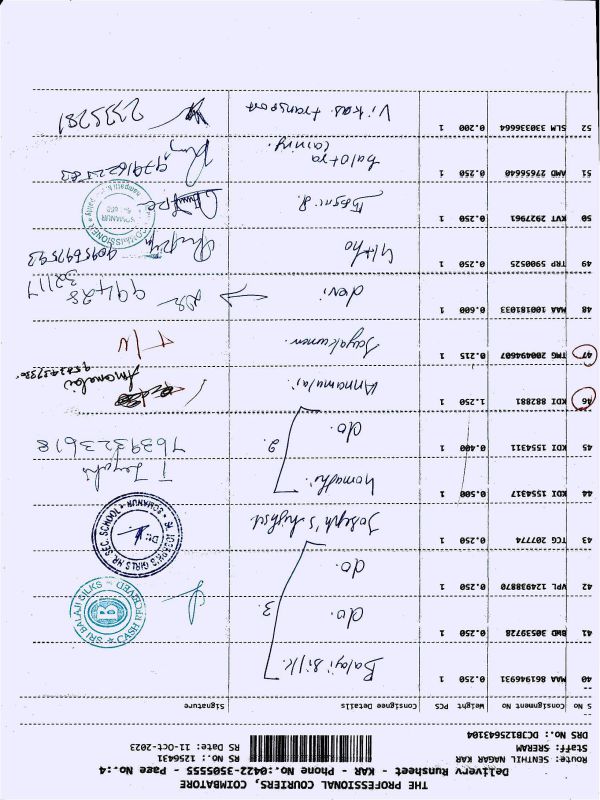 THE PROFESSIONAL COURIERS, COIMBATORE
Delivery Runsheet - KAR - Phone No.:0422-3505555 - Page No.:4
Route: SENTHIL NAGAR KAR
RS No.: 1256431
Staff: SRERAM
RS Date: 11-Oct-2023
DRS No.: DC3B125643104
S No Consignment No Weight PCS Consignee Details Signature
40 MAA 861946931 0.250 1 Balaji silk.
41 BWD 30539728 0.250 1 do. 3.
SRI BALAJI SILKS
B
42 VPL 124938870 0.250 1 do.
43 TCG 207774 0.250 1 Joseph's highsch
ST. JOSEPH'S GIRLS HR. SEC. SCHOOL
SOMANUR
44 KDI 1554317 0.500 1 homathi.
45 KDI 1554311 0.400 1 do. 2. 7639323618
46 KDI 882881 1.250 1 Annamalai
47 TMC 200494607 0.215 1 Jayakumar
48 MAA 100181033 0.600 1 devi 99428
32117
49 TRP 5900525 0.250 1 9095697593
50 KVT 2927961 0.250 1
COMMISSIONER
SOMANUR
51 AMD 27656640 0.250 1 balotra 9791622583
52 SLM 330336664 0.200 1 Vikas transport 2335281